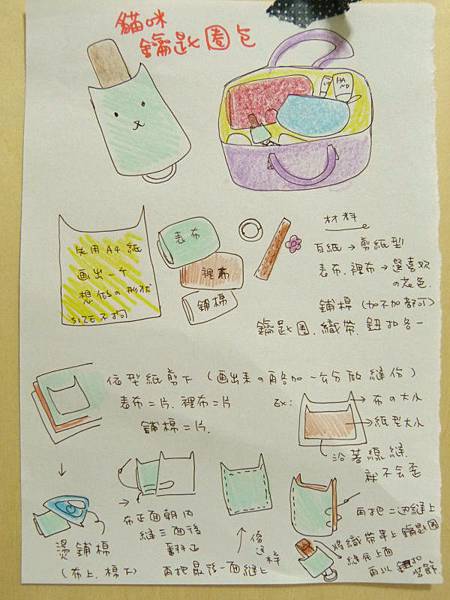 貓咪
鑰匙圈包
HAND
先用A4紙
畫出一个
想作的形狀
SIZE不拘
表布
裡布
鋪棉
材料
瓦紙→剪紙型
表布.裡布→選喜歡
の花色
鋪棉(加不加都可)
鑰匙圈.織帶.鈕扣各一
依型紙剪下(画出来の再各加一公分放縫份)
表布二片.裡布二片
鋪棉二片.
Ex:
布の大小
紙型大小
沿著線縫
就不会歪
燙鋪棉
(布上.棉下)
布正面朝内
縫三面後
翻正
再把最後一面縫上
像這样
再把二边縫上
將織帶穿上鑰匙圈
縫在上面